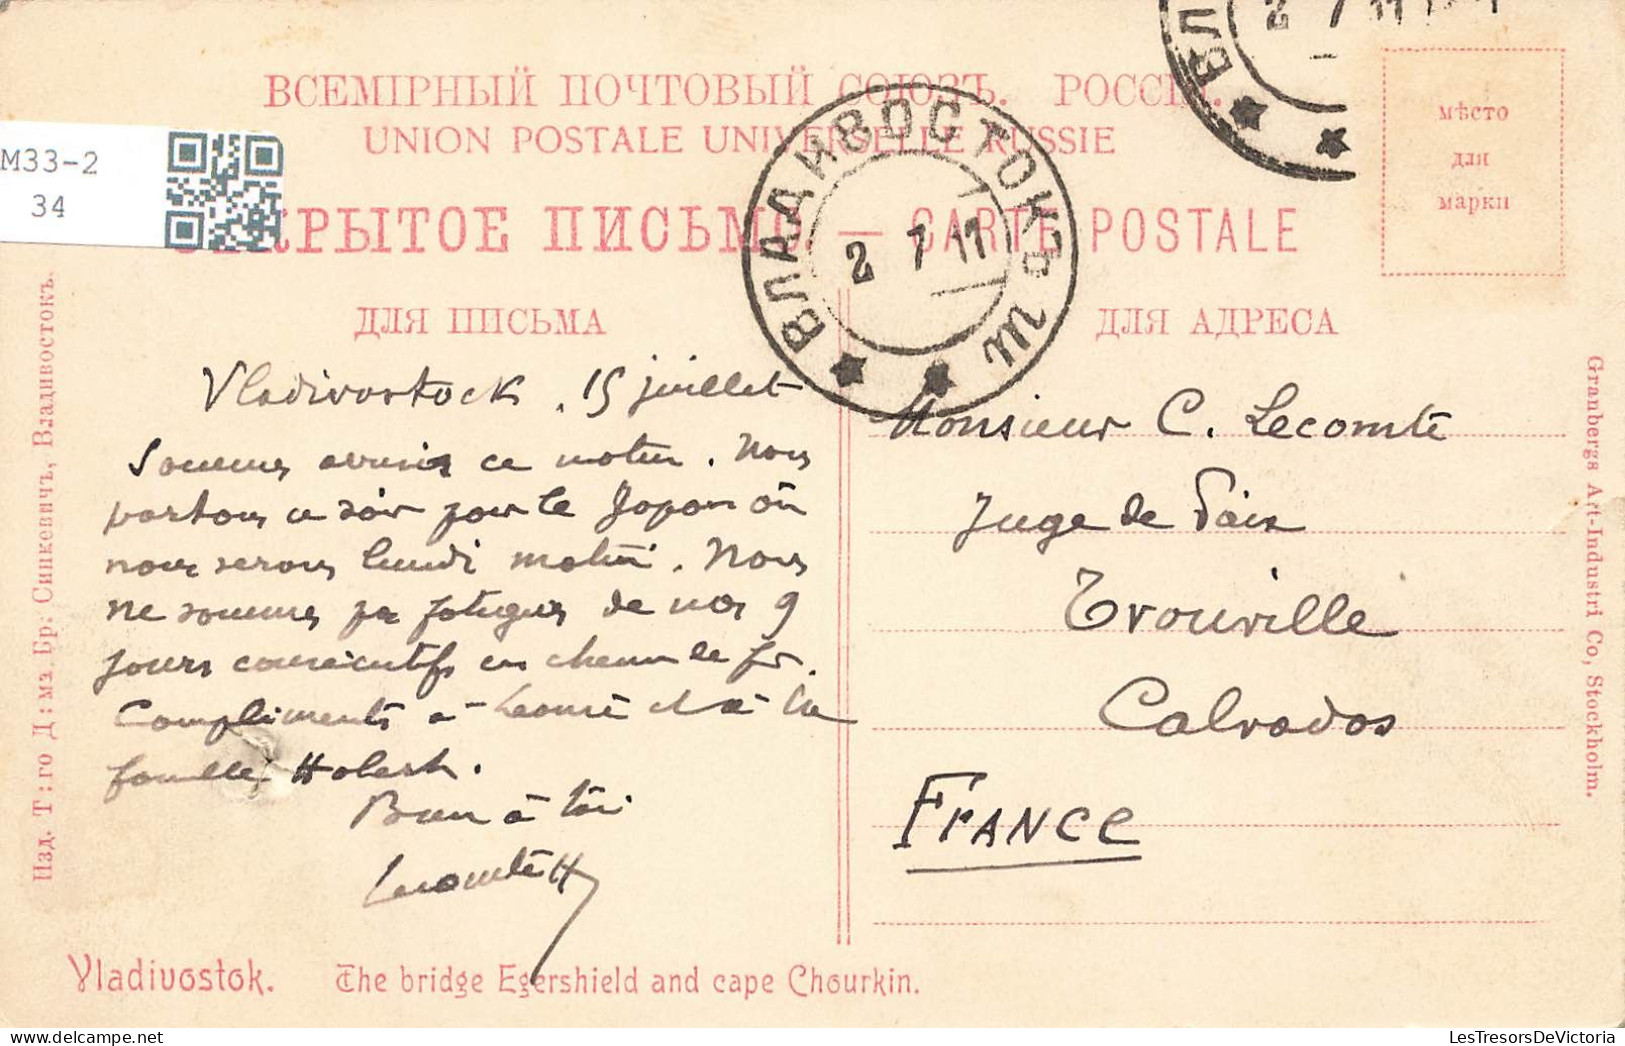 ВСЕМІРНЫЙ ПОЧТОВЫЙ СОЮЗЪ. РОССІЯ.
UNION POSTALE UNIVERSELLE RUSSIE
M33-2
34
ОТКРЫТОЕ ПИСЬМО — CARTE POSTALE
мѣсто
для
марки
ВЛАДИВОСТОКЪ
2 7 11
ВЛ
2 7 11
ДЛЯ ПИСЬМА
ДЛЯ АДРЕСА
Vladivostock, 15 juillet
Sommes arrivés ce matin. Nous
partons ce soir pour le Japon où
nous serons lundi matin. Nous
ne sommes pas fatigués de nos 9
jours consécutifs en chemin de fer.
Compliments à Léonie et à la
famille Holest.
Bien à toi
Lecomte H
Monsieur C. Lecomte
Juge de Paix
Trouville
Calvados
FRANCE
Изд. Т:го Д:ма Бр: Синкевичъ, Владивостокъ.
Granbergs Art-Industri Co, Stockholm.
Vladivostok. The bridge Egershield and cape Chourkin.
LesTresorsDeVictoria